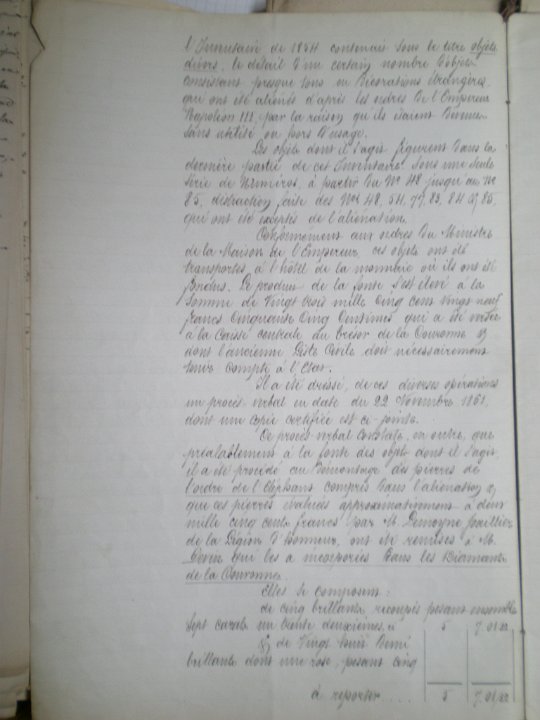 l'Inventaire de 1854 contenait sous le titre objets
divers, le détail d'un certain nombre d'objets
consistant presque tous en Décorations étrangères
qui ont été aliénés d'après les ordres de l'Empereur
Napoléon III par la raison qu'ils étaient devenus
sans utilité ou hors d'usage.
Les objets dont il s'agit figurent dans la
dernière partie de cet Inventaire sous une seule
série de Numéros, à partir du N° 48 jusqu'au N°
85, défraction faite des Nos 48, 54, 77, 83, 84 & 85,
qui ont été exceptés de l'aliénation.
Conformément aux ordres du Ministre
de la Maison de l'Empereur, ces objets ont été
transportés à l'hôtel de la monnaie où ils ont été
fondus. Le produit de la fonte s'est élevé à la
somme de Vingt trois mille cinq cent vingt neuf
francs cinquante cinq centimes qui a été versée
à la Caisse centrale du trésor de la Couronne &
dont l'ancienne Liste Civile doit nécessairement
tenir compte à l'Etat.
Il a été dressé, de ces diverses opérations
un procès-verbal en date du 22 Novembre 1861
dont une copie certifiée est ci-jointe.
Ce procès verbal constate, en outre, que
préalablement à la fonte des objets dont il s'agit,
il a été procédé au démontage des pierres de
l'ordre de l'Eléphant compris dans l'aliénation &
que ces pierres évaluées approximativement à deux
mille cinq cents francs par M. Lemoyne joaillier
de la Légion d'honneur, ont été remises à M.
Devin qui les a incorporées dans les Diamants
de la Couronne.
Elles se composent :
de cinq brillants, recoupés pesant ensemble
sept carats un trente deuxièmes, ci 5 7. 01/32
& de Vingt huit demi
brillants dont une rose, pesant cinq
à reporter..... 5 7. 01/32